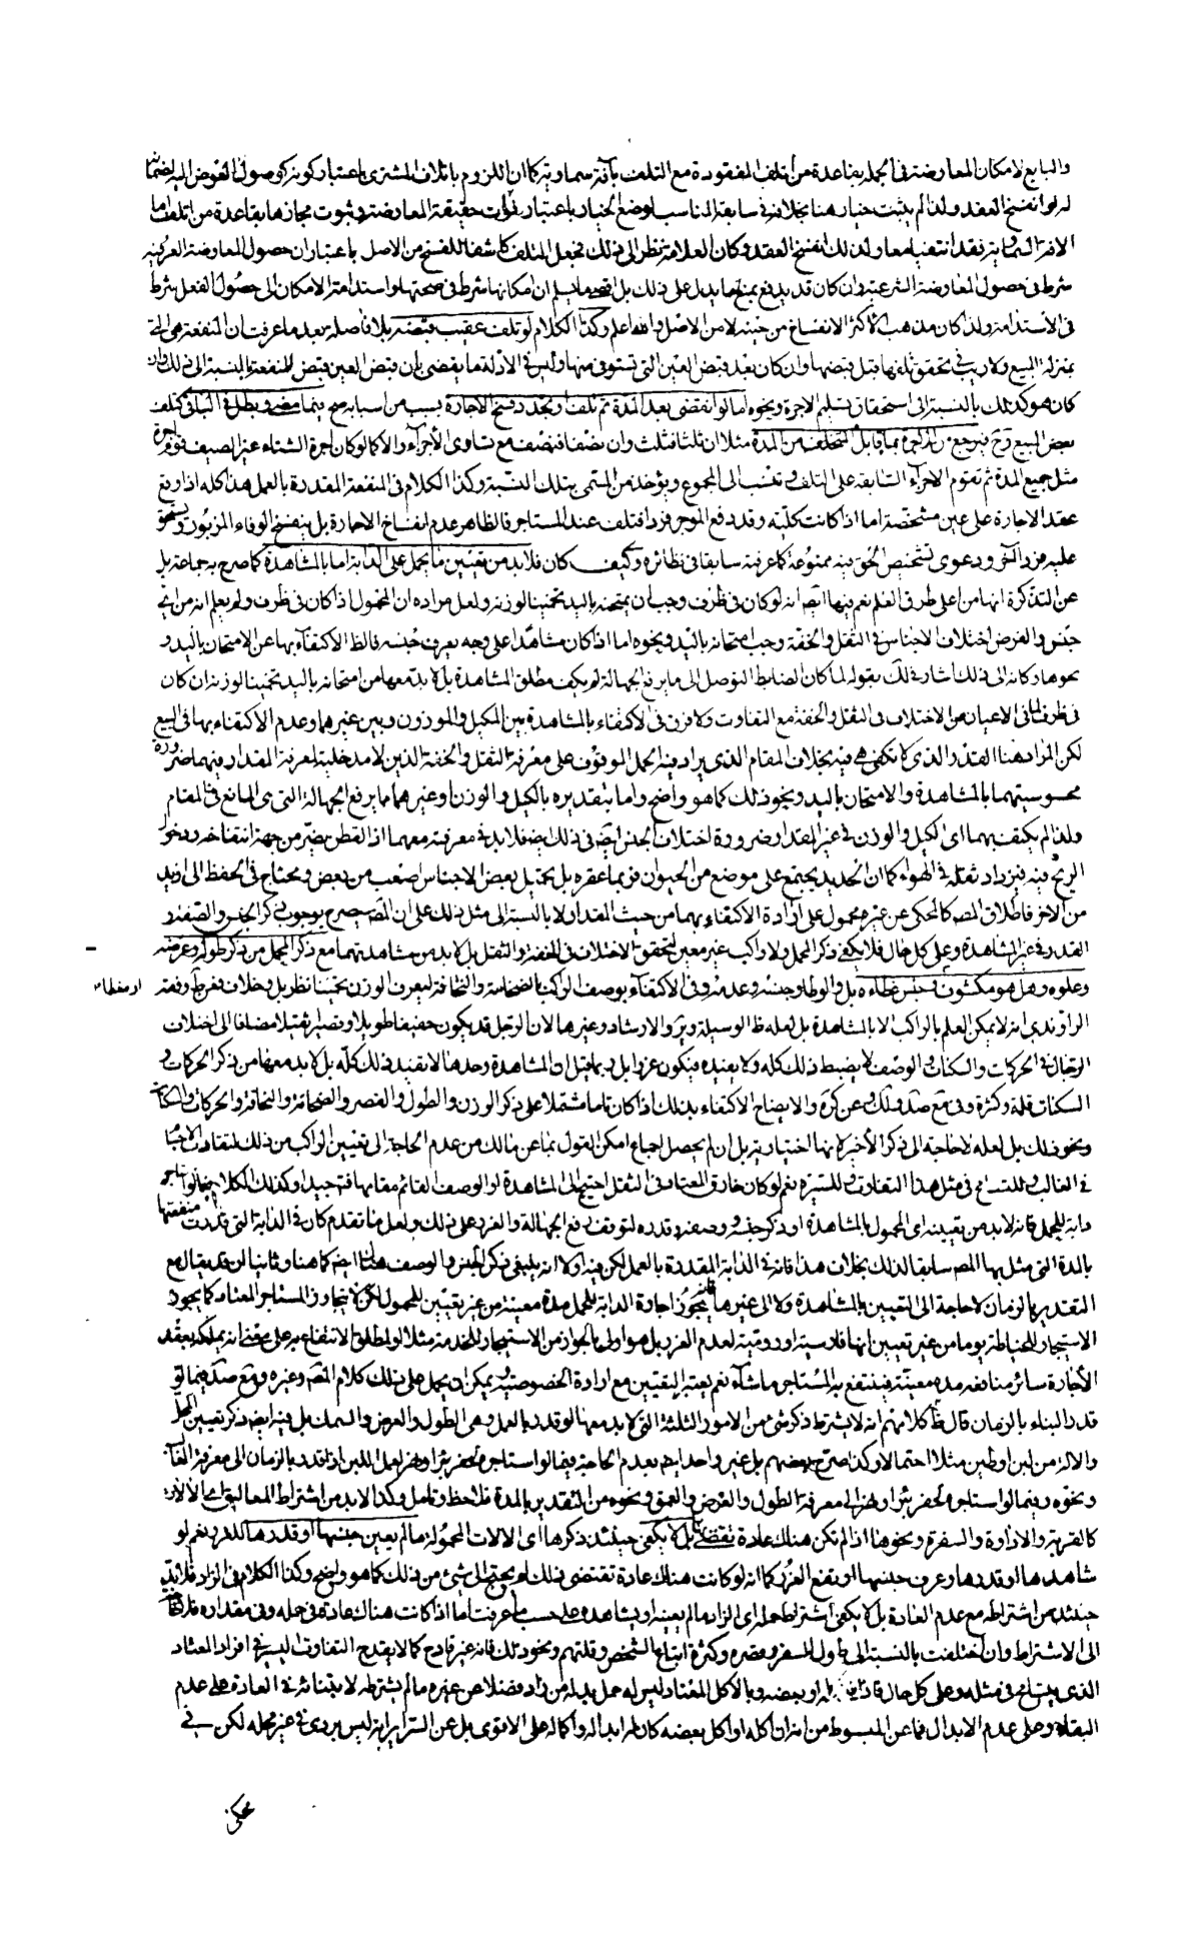 والبايع لامكان المعاوضة في الجملة بقاعدة من أتلف المفقودة مع التلف بآفة سماوية كما ان اللزوم باتلاف المشترى باعتبار كونه كوصول العوض اليه لضمانه
له لو انفسخ العقد ولذا لم يثبت خيار هنا بخلافه في سابقه المناسب لوضع الخيار باعتبار فوات حقيقة المعاوضة وثبوت مجازها بقاعدة من اتلف اما
الآفة السماوية فقد انتفيا معا ولذلك انفسخ العقد وكان العلامة نظر الى ذلك فجعل التلف كاشفا للفسخ من الاصل باعتبار ان حصول المعاوضة العرفية
شرط في حصول المعاوضة الشرعية وان كان قد يدفع بمنع ما يدل على ذلك بل اقصى ما يسلم ان امكانها شرط في صحتها واستدامة الامكان الى حصول الفعل شرط
في الاستدامة ولذا كان مذهب الأكثر الانفساخ من حينه لا من الاصل والله اعلم وكذا الكلام لو تلف عقيب قبضه بلا فاصلة بعد ما عرفت ان المنفعة هي التي
بمنزلة المبيع ولا ريب في تحقق تلفها قبل قبضها وان كان بعد قبض العين التي تستوفى منها وليس في الادلة ما يقضى بان قبض العين قبض للمنفعة بالنسبة الى ذلك وان
كان هو كذلك بالنسبة الى استحقاق تسلم الاجرة ونحوه اما لو انقضى بعد المدة ثم تلف أو تجدد فسخ الاجارة بسبب من اسبابه صح فيما مضى وبطل في الباقي كتلف
بعض المبيع وحينئذ فيرجع من الاجرة بما قابل المتخلف من المدة مثلا ان ثلثا فثلث وان نصفا فنصف مع تساوى الأجزاء والا كما لو كان اجرة الشتاء غير الصيف قوم اجرة
مثل جميع المدة ثم تقوم الاجزاء السابقة على التلف وتنسب الى المجموع ويؤخذ من المسمى بتلك النسبة وكذا الكلام في المنفعة المقدرة بالعمل هذا كله اذا وقع
عقد الاجارة على عين مشخصة اما اذا كانت كلية وقد دفع الموجر فردا فتلف عند المستاجر فالظاهر عدم انفساخ الاجارة بل ينفسخ الوفاء المزبور ويستحق
عليه فردا آخر ودعوى تشخيص الحق فيه ممنوعة كما عرفته سابقا في نظائره وكيف كان فلا بد من تعيين ما يحمل على الدابة اما بالمشاهدة كما صرح به جماعة بل
عن التذكرة انها من اعلى طرق العلم نعم فيها ايضا انه لو كان في ظرف وجب ان يمتحنه باليد تخمينا لوزنه ولعل مراده ان المحمول اذا كان في ظرف ولم يعلم انه من اي
جنس والغرض اختلاف الاجناس في الثقل والخفة وجب امتحانه باليد ونحوه اما اذا كان مشاهدا على وجه يعرف جنسه فالظ الاكتفاء بها عن الامتحان باليد و
نحوها وكانه الى ذلك اشار في لك بقوله لما كان الضابط التوصل الى ما يرفع الجهالة لم يكف مطلق المشاهدة بل لا بد معها من امتحانه باليد تخمينا لوزنه ان كان
في ظرف لما في الاعيان من الاختلاف في الثقل والخفة مع التفاوت ولا فرق في الاكتفاء بالمشاهدة بين المكيل والموزون وبين غيرهما وعدم الاكتفاء بها في البيع
لكن المراد هنا القدر والذي كا تكفى هي فيه بخلاف المقام الذي يراد فيه الحمل الموقوف على معرفة الثقل والخفة الذين لا مدخلية لمعرفة المقدار فيهما ضرورة
محسوسيتهما بالمشاهدة والامتحان باليد ونحو ذلك كما هو واضح واما بتقديره بالكيل والوزن او غيرهما ما يرفع الجهالة التي هي المانع في المقام
ولذا لم يكتف بهما اى الكيل والوزن في غير المقدار ضرورة اختلاف الجنس ايضا في ذلك ايضا فلا بد في معرفته معهما اذ القطن يضر من جهة انتفاخه ودخول
الريح فيه فيزداد ثقله في الهواء كما ان الحديد يجتمع على موضع من الحيوان فربما عقره بل تحميل بعض الاجناس اصعب من بعض ويحتاج في الحفظ الى ازيد
من الآخر فاطلاق المص كالمحكى عن غيره محمول على ارادة الاكتفاء بهما من حيث المقدار لا بالنسبة الى مثل ذلك على ان المص صرح بوجوب ذكر الجنس والصفة و
القدر في غير المشاهدة وعلى كل حال فلا يكفى ذكر المحمل ولا راكب غير معين لتحقق الاختلاف في الخفة والثقل بل لا بد من مشاهدتهما مع ذكر المحمل من ذكر طوله وعرضه
وعلوه وهل هو مكشوف او مغطا وجنس غطاءه بل والوطاء وجنسه وعدمه وفي الاكتفاء بوصف الراكب بالضخامة والنحافة ليعرف الوزن تخمينا نظر بل وخلاف فعن وفقه
الراوندي انه لا يمكن العلم بالراكب الا بالمشاهدة بل لعله ظ الوسيلة وير والارشاد وغيرها لان الرجل قد يكون خفيفا طويلا وقصيرا ثقيلا مضافا الى اختلاف
الرجال في الحركات والسكنات والوصف لا يضبط ذلك كله ولا يفيده فيكون غررا بل ربما قيل ان المشاهدة وحدها لا تفيد ذلك كله بل لا بد معها من ذكر الحركات و
السكنات قلة وكثرة وفي مع صد ولك وعن كره والايضاح الاكتفاء بذلك اذا كان تاما مشتملا على ذكر الوزن والطول والقصر والضخامة والنحافة والحركات والسكنات
ونحو ذلك بل لعله لا حاجة الى ذكر الأخيرة لانها اختيارية بل ان لم يحصل اجماع امكن القول بما عن مالك من عدم الحاجة الى تعيين الراكب من ذلك
في الغالب والتسامح في مثل هذا التفاوت والسيرة نعم لو كان خارق المعتاد في الثقل احتيج الى المشاهدة او الوصف القائم مقامها فتح جيدا وكذلك الكلام فيما لو آجر
دابة للحمل فانه لا بد من تعيينه اى المحمول بالمشاهدة او ذكر جنسه وصفته وقدره لتوقف رفع الجهالة والغرر على ذلك ولعل ما تقدم كان في الدابة التي قدرت منفعتها
بالمدة التي مثل بها المص سابقا لذلك بخلاف هذا فانه في الدابة المقدرة بالعمل لكن فيه اولا انه ينبغي ذكر الجنس والوصف هناك ايضا كما هنا وثانيا ان قد يقال مع
التقدير بالزمان لا حاجة الى التعيين بالمشاهدة ولا الى غيرها فانه يجوز اجارة الدابة للحمل مدة معينة من غير تعيين للمحمول لكن لا يتجاوز المستاجر المعتاد كما يجوز
الاستيجار للخياطة يوما من غير تعيين انها فارسية او رومية لعدم الغرر بل هو اولى بالجواز من الاستيجار للخدمة مثلا او لمطلق الانتفاع به على معنى انه يملك بعقد
الأجارة سائر منافعه مدة معينة فينتفع به المستاجر ما شاء نعم يعتبر التعيين مع ارادة الخصوصية ويمكن ان يحمل على ذلك كلام المص وغيره ومع صد فيما لو
قدر البناء بالزمان قال ظ كلامهم انه لا يشترط ذكر شئ من الامور الثلثة التي لا بد معها لو قدر بالعمل وهي الطول والعرض والسمك بل فيه ايضا ذكر تعيين المحل
والآلة من لبن او طين مثلا احتمالا وكذا صرح بعضهم بل غير واحد ايضا بعدم الحاجة فيما لو استاجره لحفر بئر او نهر لعمل اللبن اذا قدر بالزمان الى معرفة القالب
ونحوه وفيما لو استاجره لحفر بئر او نهر الى معرفة الطول والعرض والعمق ونحوه من التقدير بالمدة فلاحظ وتامل وكذا لا بد من اشتراط المعاليق اى الآلات
كالقربة والاداوة والسفرة ونحوها اذا لم تكن هناك عادة تقتضيه بل لا يكفى حينئذ ذكرها اى الالات المحمولة ما لم يعين جنسها او قدرها للغرر نعم لو
شاهدها او قدرها وعرف جنسها ارتفع الغرر كما انه لو كانت هناك عادة تقتضى ذلك لم يحتج الى شئ من ذلك كما هو واضح وكذا الكلام في الزاد فلا بد
حينئذ من اشتراطه مع عدم العادة بل لا يكفى اشتراط حمله اى الزاد ما لم يعينه او يشاهده على حسب ما عرفت اما اذا كانت هناك عادة في حمله وفي مقداره فلا حاجة
الى الاشتراط وان اختلفت بالنسبة الى طول السفر وقصره وكثرة اتباع الشخص وقلتهم ونحو ذلك فانه غير قادح كما لا يقدح التفاوت اليسير في افراد المعتاد
الذي يتسامح في مثله وعلى كل حال فاذا فنى كله او بعضه وبالاكل المعتاد ليس له حمل بدله من زاد فضلا عن غيره ما لم يشترطه لابتنائه في العادة على عدم
البقاء وعلى عدم الابدال فما عن المبسوط من انه ان اكله او اكل بعضه كان له ابداله واكماله على الاقوى بل عن السرائر انه ليس بردى في غير محله لكن في
او مغطا
محكى